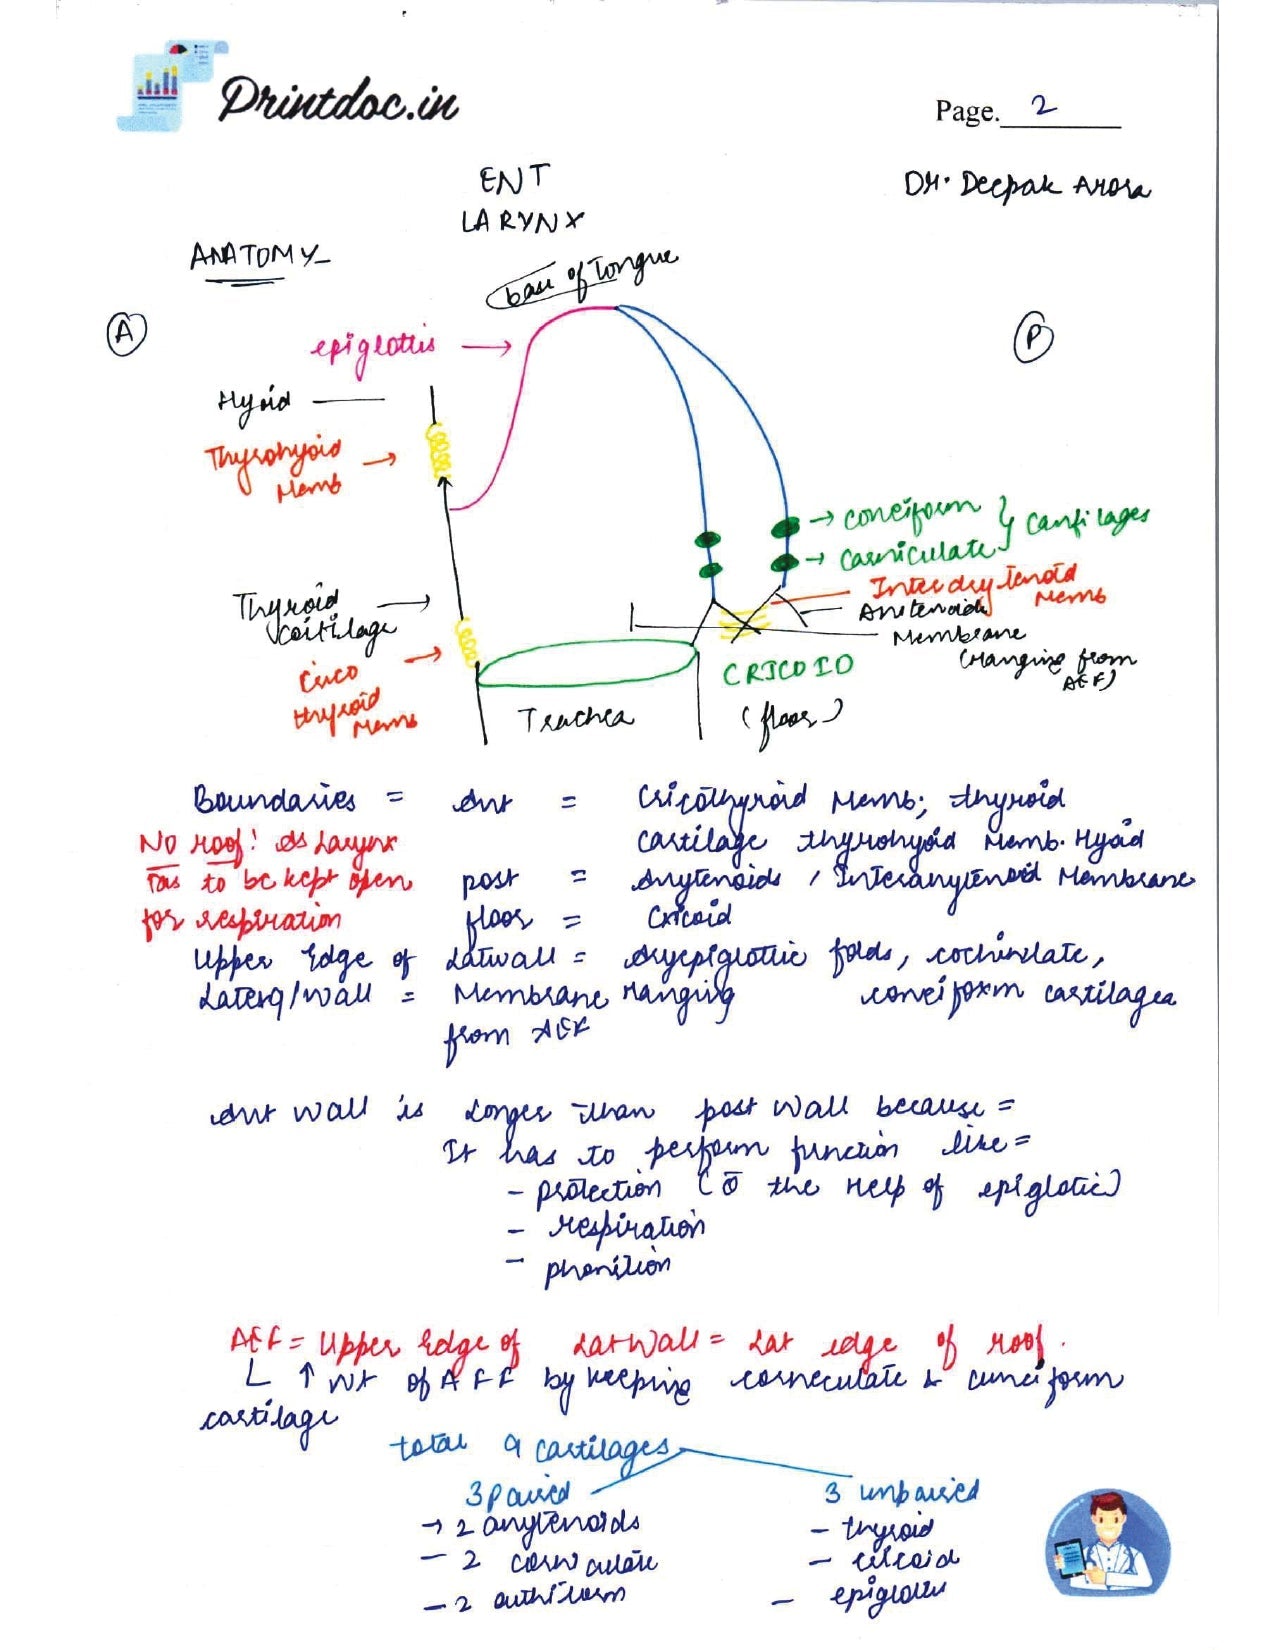 Printdoc.in
Page. 2
ENT
Dr. Deepak Arora
LARYNX
ANATOMY-
base of Tongue
A
P
epiglottis
Hyoid
Thyrohyoid
Memb
coneiform
cartilages
corniculate
Interarytenoid
Memb
Thyroid
cartilage
Arytenoids
Membrane
(Hanging from
AEF)
Crico
thyroid
Memb
CRICOID
(floor)
Trachea
Boundaries = Ant = Cricothyroid Memb; thyroid
cartilage thyrohyoid Memb. Hyoid
No roof! As Larynx
has to be kept open
for respiration
post = Arytenoids, Interarytenoid Membrane
floor = Cricoid
Upper Edge of Latwall = Aryepiglottic folds,
coneiform cartilages
Lateral wall = Membrane Hanging
from AEF
Ant wall is Longer than post wall because =
It has to perform function like =
- protection (c̄ the Help of epiglotic)
- respiration
- phonation
AEF = Upper Edge of Lat Wall = Lat edge of roof.
↑ wt of AEF by keeping corneculate & cuneiform
cartilage
total 9 cartilages
3 paired
3 unpaired
→ 2 arytenoids
- thyroid
- 2 corniculate
- cricoid
- 2
- epiglottis